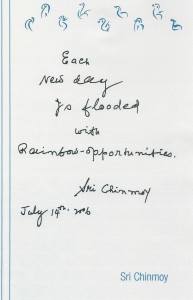 Each
New day
Is flooded
with
Rainbow-opportunities.
Sri Chinmoy
July 19th. 2006
Sri Chinmoy